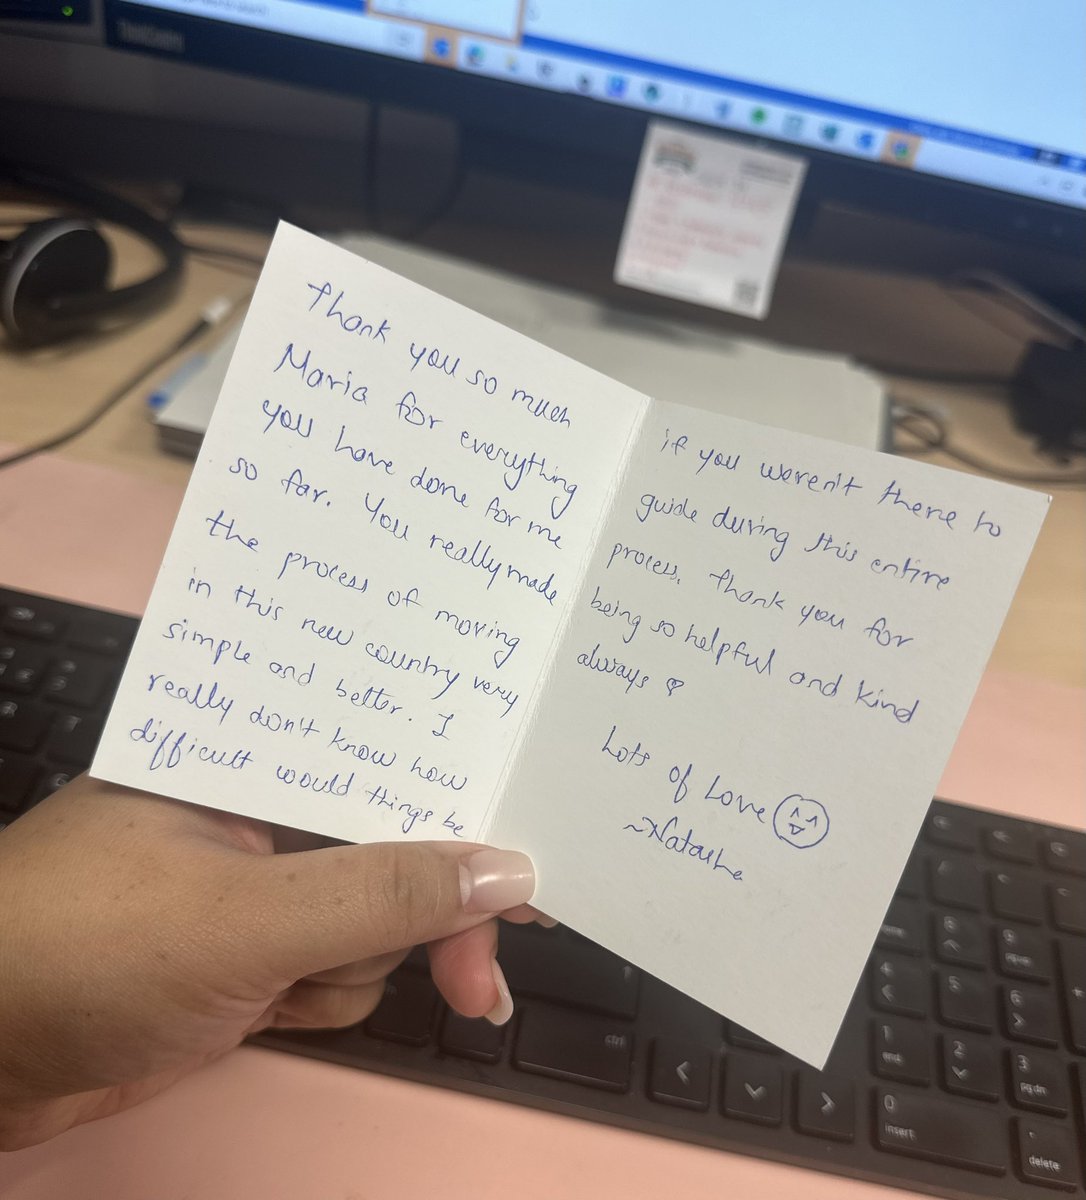 Thank you so much
Maria for everything
you have done for me
so far. You really made
the process of moving
in this new country very
simple and better. I
really don't know how
difficult would things be
if you weren't there to
guide during this entire
process. Thank you for
being so helpful and kind
always
Lots of Love
~Natasha
ctrl
8
9
pgup
4
5
6
1
end
2
3
pg dn
0
insert
.
delete